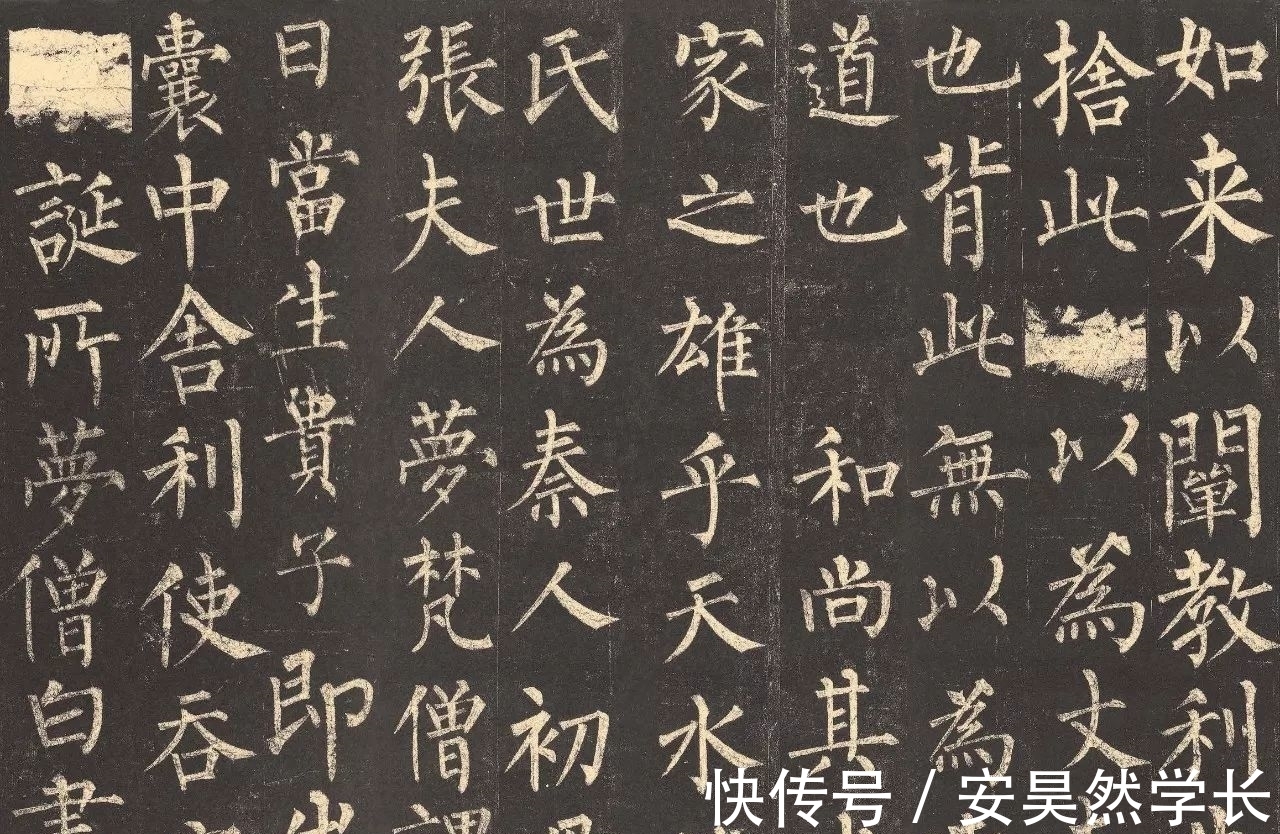 如来以闡教利
捨此以為丈
也背此無以為
道也和尚其
家之雄乎天水
氏世為秦人初
張夫人夢梵僧
曰當生貴子即
囊中舍利使吞
誕所夢僧白晝
快传号 / 安昊然学长